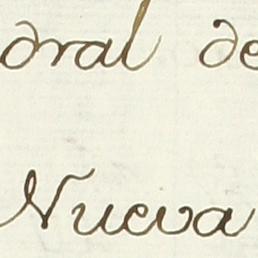 dral de
Nueva